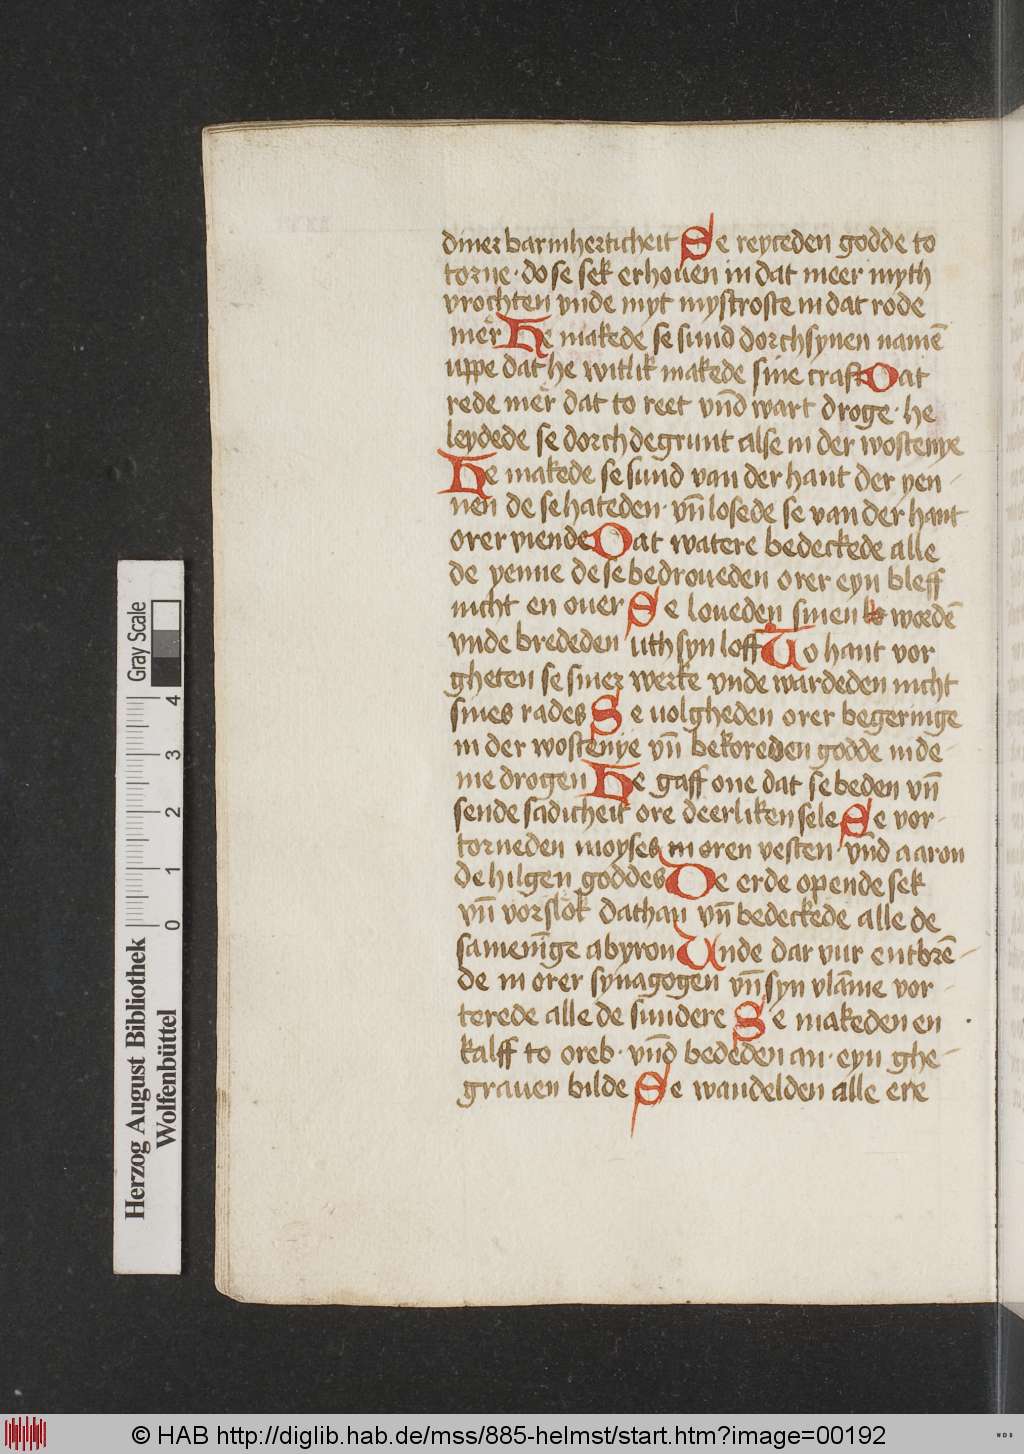 diner barmherticheit Se reyceden godde to
torne · do se sek erhouen in dat meer myth
vrochten vnde myt mystroste in dat rode
mer He makede se sund dorch synen namē
uppe dat he witlik makede sine craft Dat
rede mer dat to reet vn̄d wart droge · he
leydede se dorch de grunt alse in der wostenye
He makede se sund van der hant der yen-
nen de se hateden · vn̄ losede se van der hant
orer viende Dat watere bedeckede alle
de yenne de se bedroueden orer eyn bleff
nicht en ouer Se loueden sinen wordē
vnde brededen uth syn loff To hant vor
gheten se siner werke vnde wardeden nicht
sines rades Se uolgheden orer begeringe
in der wostenye vn̄ bekoreden godde in de-
me drogen He gaff one dat se beden vn̄
sende sadicheit ore deerliken sele Se vor-
torneden moyses in oren vesten · vn̄d aaron
de hilgen goddes De erde opende sek
vn̄ vorslok dathan vn̄ bedeckede alle de
samenīge abyron Unde dar vur entbrē-
de in orer synagogen vn̄ syn vlāme vor-
terede alle de sundere Se makeden en
kalff to oreb · vn̄d bededen an · eyn ghe-
grauen bilde Se wandelden alle ere
Gray Scale
0 1 2 3 4
Herzog August Bibliothek
Wolfenbüttel
© HAB http://diglib.hab.de/mss/885-helmst/start.htm?image=00192